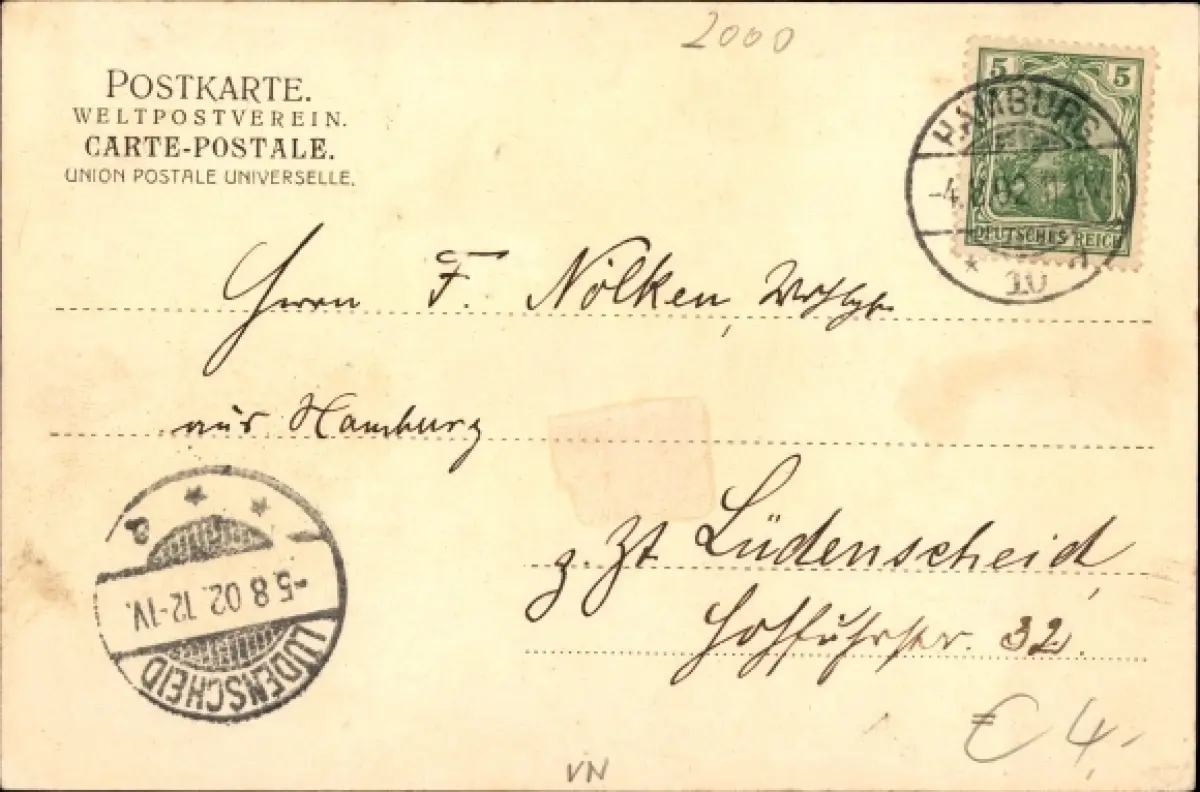 2000
POSTKARTE.
WELTPOSTVEREIN.
CARTE-POSTALE.
UNION POSTALE UNIVERSELLE.
5 5
HAMBURG
-4. 8. 02
DEUTSCHES REICH
10
Herrn F. Nölken, Wohlgb.
aus Hamburg
z. Zt Lüdenscheid,
32.
a
-5 8 02. 12-1V.
LÜDENSCHEID
€ 4,-
VN